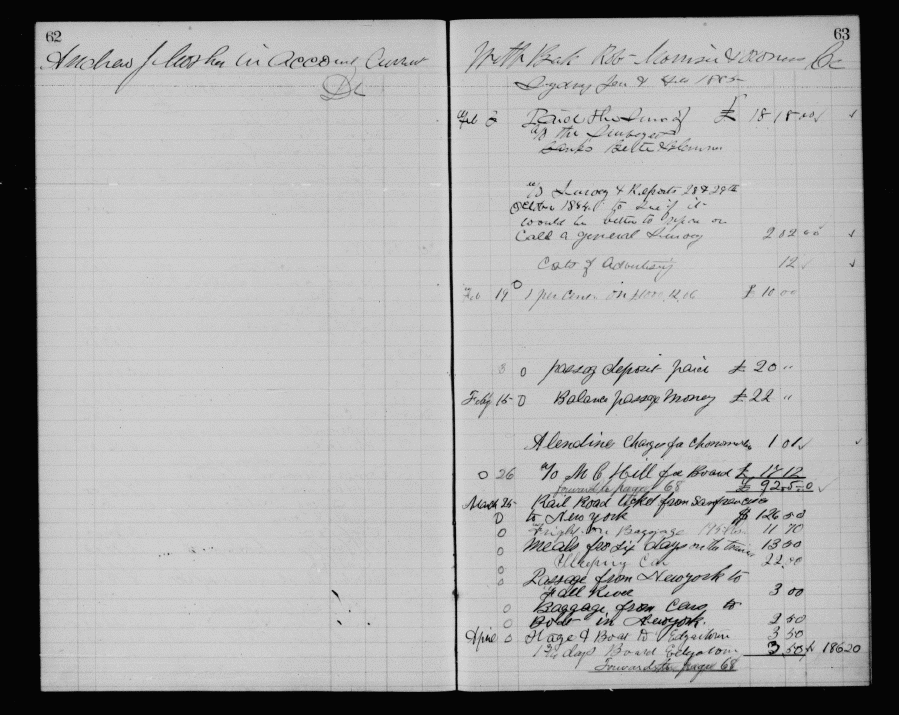 62
in Account Current
Dr
63
With Bark Robt Morrison & owners Cr
Sydney Jan 1885
Feb 2 Paid the £ 18 18 00
a/c the
a/c Survey & Reports 28 & 29th
October 1884 to see if it
would be better to or
Call a general Survey 2 02 00
Costs of Advertising 12
Feb 19 0 1 per cent on £ 10 00
8 0 passag deposit paid £ 20 "
Feby 15 0 Balance passage Money £ 22 "
Charges for Chronometer 1 01
0 26 a/c M C Hill for Board £ 17 12
forward to page 68 £ 92 5 0
March 25 Rail Road ticket from San francisco
0 to New york $ 126 50
0 Fright on Baggage 11 70
0 Meals for six days on the train 13 50
0 Sleeping Car 22 00
0 Passage from New york to
Fall River 3 00
0 Baggage from Cars to
0 Boat in New york 2 50
Aprie 0 Stage & Boat to Edgartown 3 50
days Board Edgartown 3 50 $ 186 20
Forward to page 68